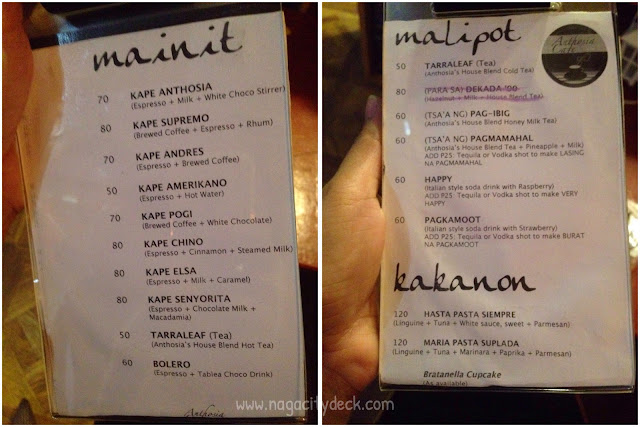 mainit
70 KAPE ANTHOSIA
(Espresso + Milk + White Choco Stirrer)
80 KAPE SUPREMO
(Brewed Coffee + Espresso + Rhum)
70 KAPE ANDRES
(Espresso + Brewed Coffee)
50 KAPE AMERIKANO
(Espresso + Hot Water)
70 KAPE POGI
(Brewed Coffee + White Chocolate)
80 KAPE CHINO
(Espresso + Cinnamon + Steamed Milk)
80 KAPE ELSA
(Espresso + Milk + Caramel)
80 KAPE SENYORITA
(Espresso + Chocolate Milk +
Macadamia)
50 TARRALEAF (Tea)
(Anthosia's House Blend Hot Tea)
60 BOLERO
(Espresso + Tablea Choco Drink)
Anthosia
malipot
Anthosia
Cafe
50 TARRALEAF (Tea)
(Anthosia's House Blend Cold Tea)
80 (PARA SA) DEKADA '90
(Hazelnut + Milk + House Blend Tea)
60 (TSA'A NG) PAG-IBIG
(Anthosia's House Blend Honey Milk Tea)
60 (TSA'A NG) PAGMAMAHAL
(Anthosia's House Blend Tea + Pineapple + Milk)
ADD P25: Tequila or Vodka shot to make LASING
NA PAGMAMAHAL
60 HAPPY
(Italian style soda drink with Raspberry)
ADD P25: Tequila or Vodka shot to make VERY
HAPPY
60 PAGKAMOOT
(Italian style soda drink with Strawberry)
ADD P25: Tequila or Vodka shot to make BURAT
NA PAGKAMOOT
kakanon
120 HASTA PASTA SIEMPRE
(Linguine + Tuna + White sauce, sweet + Parmesan)
120 MARIA PASTA SUPLADA
(Linguine + Tuna + Marinara + Paprika + Parmesan)
Bratanella Cupcake
(As available)
www.nagacitydeck.com